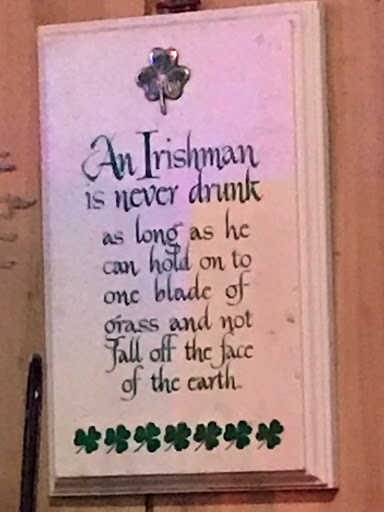 An Irishman
is never drunk
as long as he
can hold on to
one blade of
grass and not
fall off the face
of the earth.